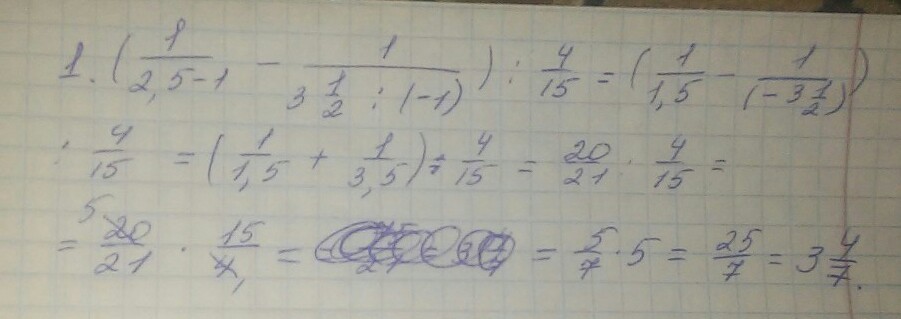 1. (1/(2,5-1) - 1/(3 1/2 : (-1))) : 4/15 = (1/1,5 - 1/(-3 1/2))
: 4/15 = (1/1,5 + 1/3,5) : 4/15 = 20/21 : 4/15 =
= 5 20/21 · 15/4, = = 5/7 · 5 = 25/7 = 3 4/7.